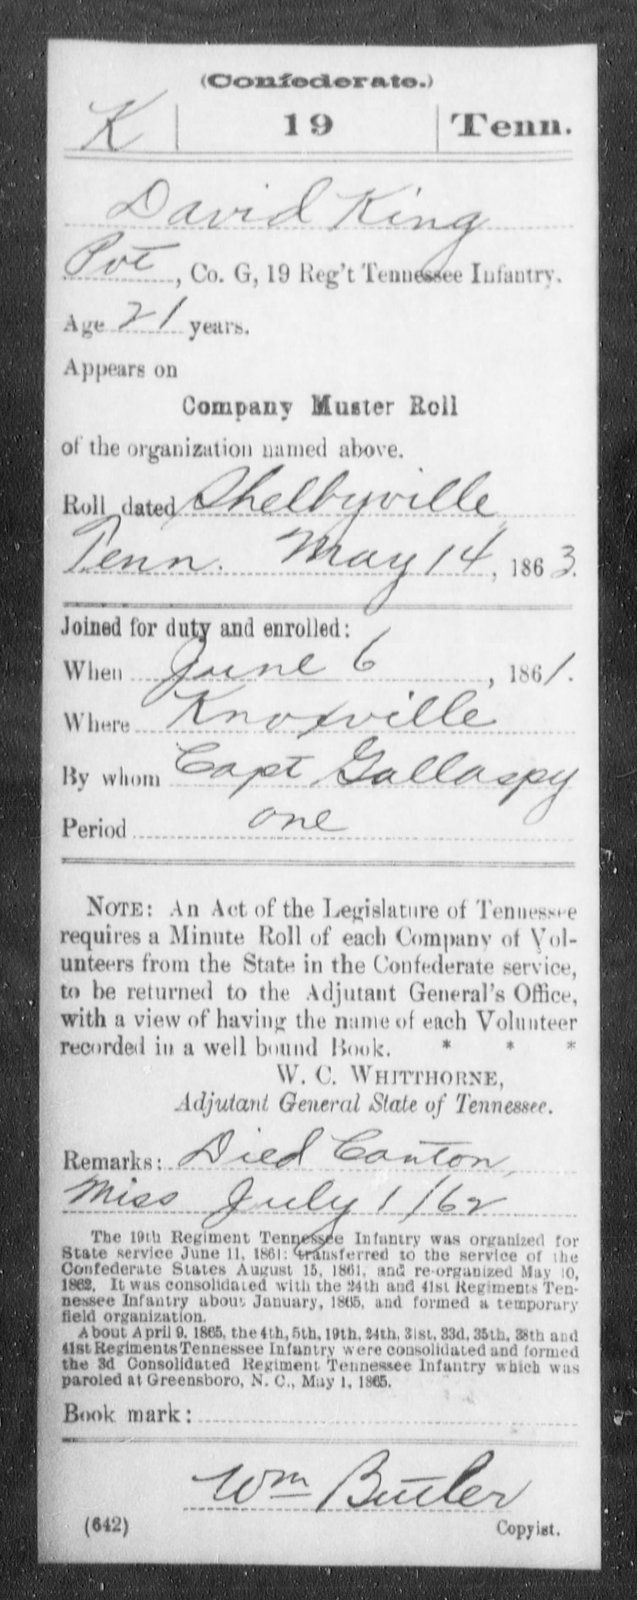 (Confederate.)
K | 19 | Tenn.
David King
Pvt, Co. G, 19 Reg't Tennessee Infantry.
Age 21 years.
Appears on
Company Muster Roll
of the organization named above.
Roll dated Shelbyville
Tenn. May 14, 1863.
Joined for duty and enrolled:
When June 6, 1861.
Where Knoxville
By whom Capt Gallaspy
Period one
NOTE: An Act of the Legislature of Tennessee
requires a Minute Roll of each Company of Vol-
unteers from the State in the Confederate service,
to be returned to the Adjutant General's Office,
with a view of having the name of each Volunteer
recorded in a well bound Book. * * *
W. C. WHITTHORNE,
Adjutant General State of Tennessee.
Remarks: Died Canton,
Miss July 1/62
The 19th Regiment Tennessee Infantry was organized for
State service June 11, 1861; transferred to the service of the
Confederate States August 15, 1861, and re-organized May 10,
1862. It was consolidated with the 24th and 41st Regiments Ten-
nessee Infantry about January, 1865, and formed a temporary
field organization.
About April 9, 1865, the 4th, 5th, 19th, 24th, 31st, 33d, 35th, 38th and
41st Regiments Tennessee Infantry were consolidated and formed
the 3d Consolidated Regiment Tennessee Infantry which was
paroled at Greensboro, N. C., May 1, 1865.
Book mark:
Wm Butler
(642) Copyist.